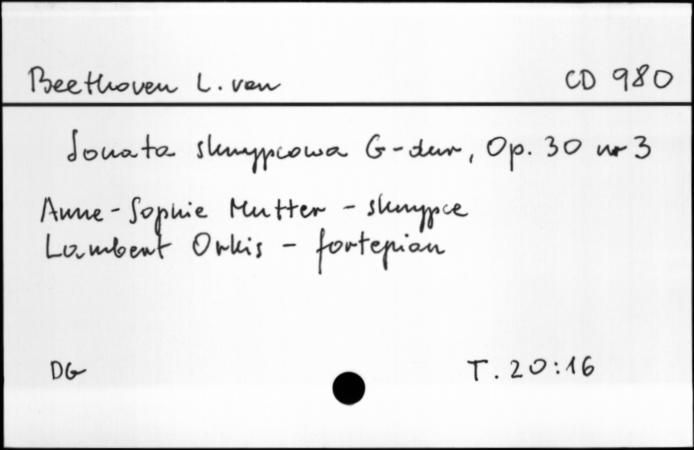 Beethoven L. van CD 980
Sonata skrzypcowa G-dur, Op. 30 nr 3
Anne-Sophie Mutter - skrzypce
Lambert Orkis - fortepian
DG T. 20:16